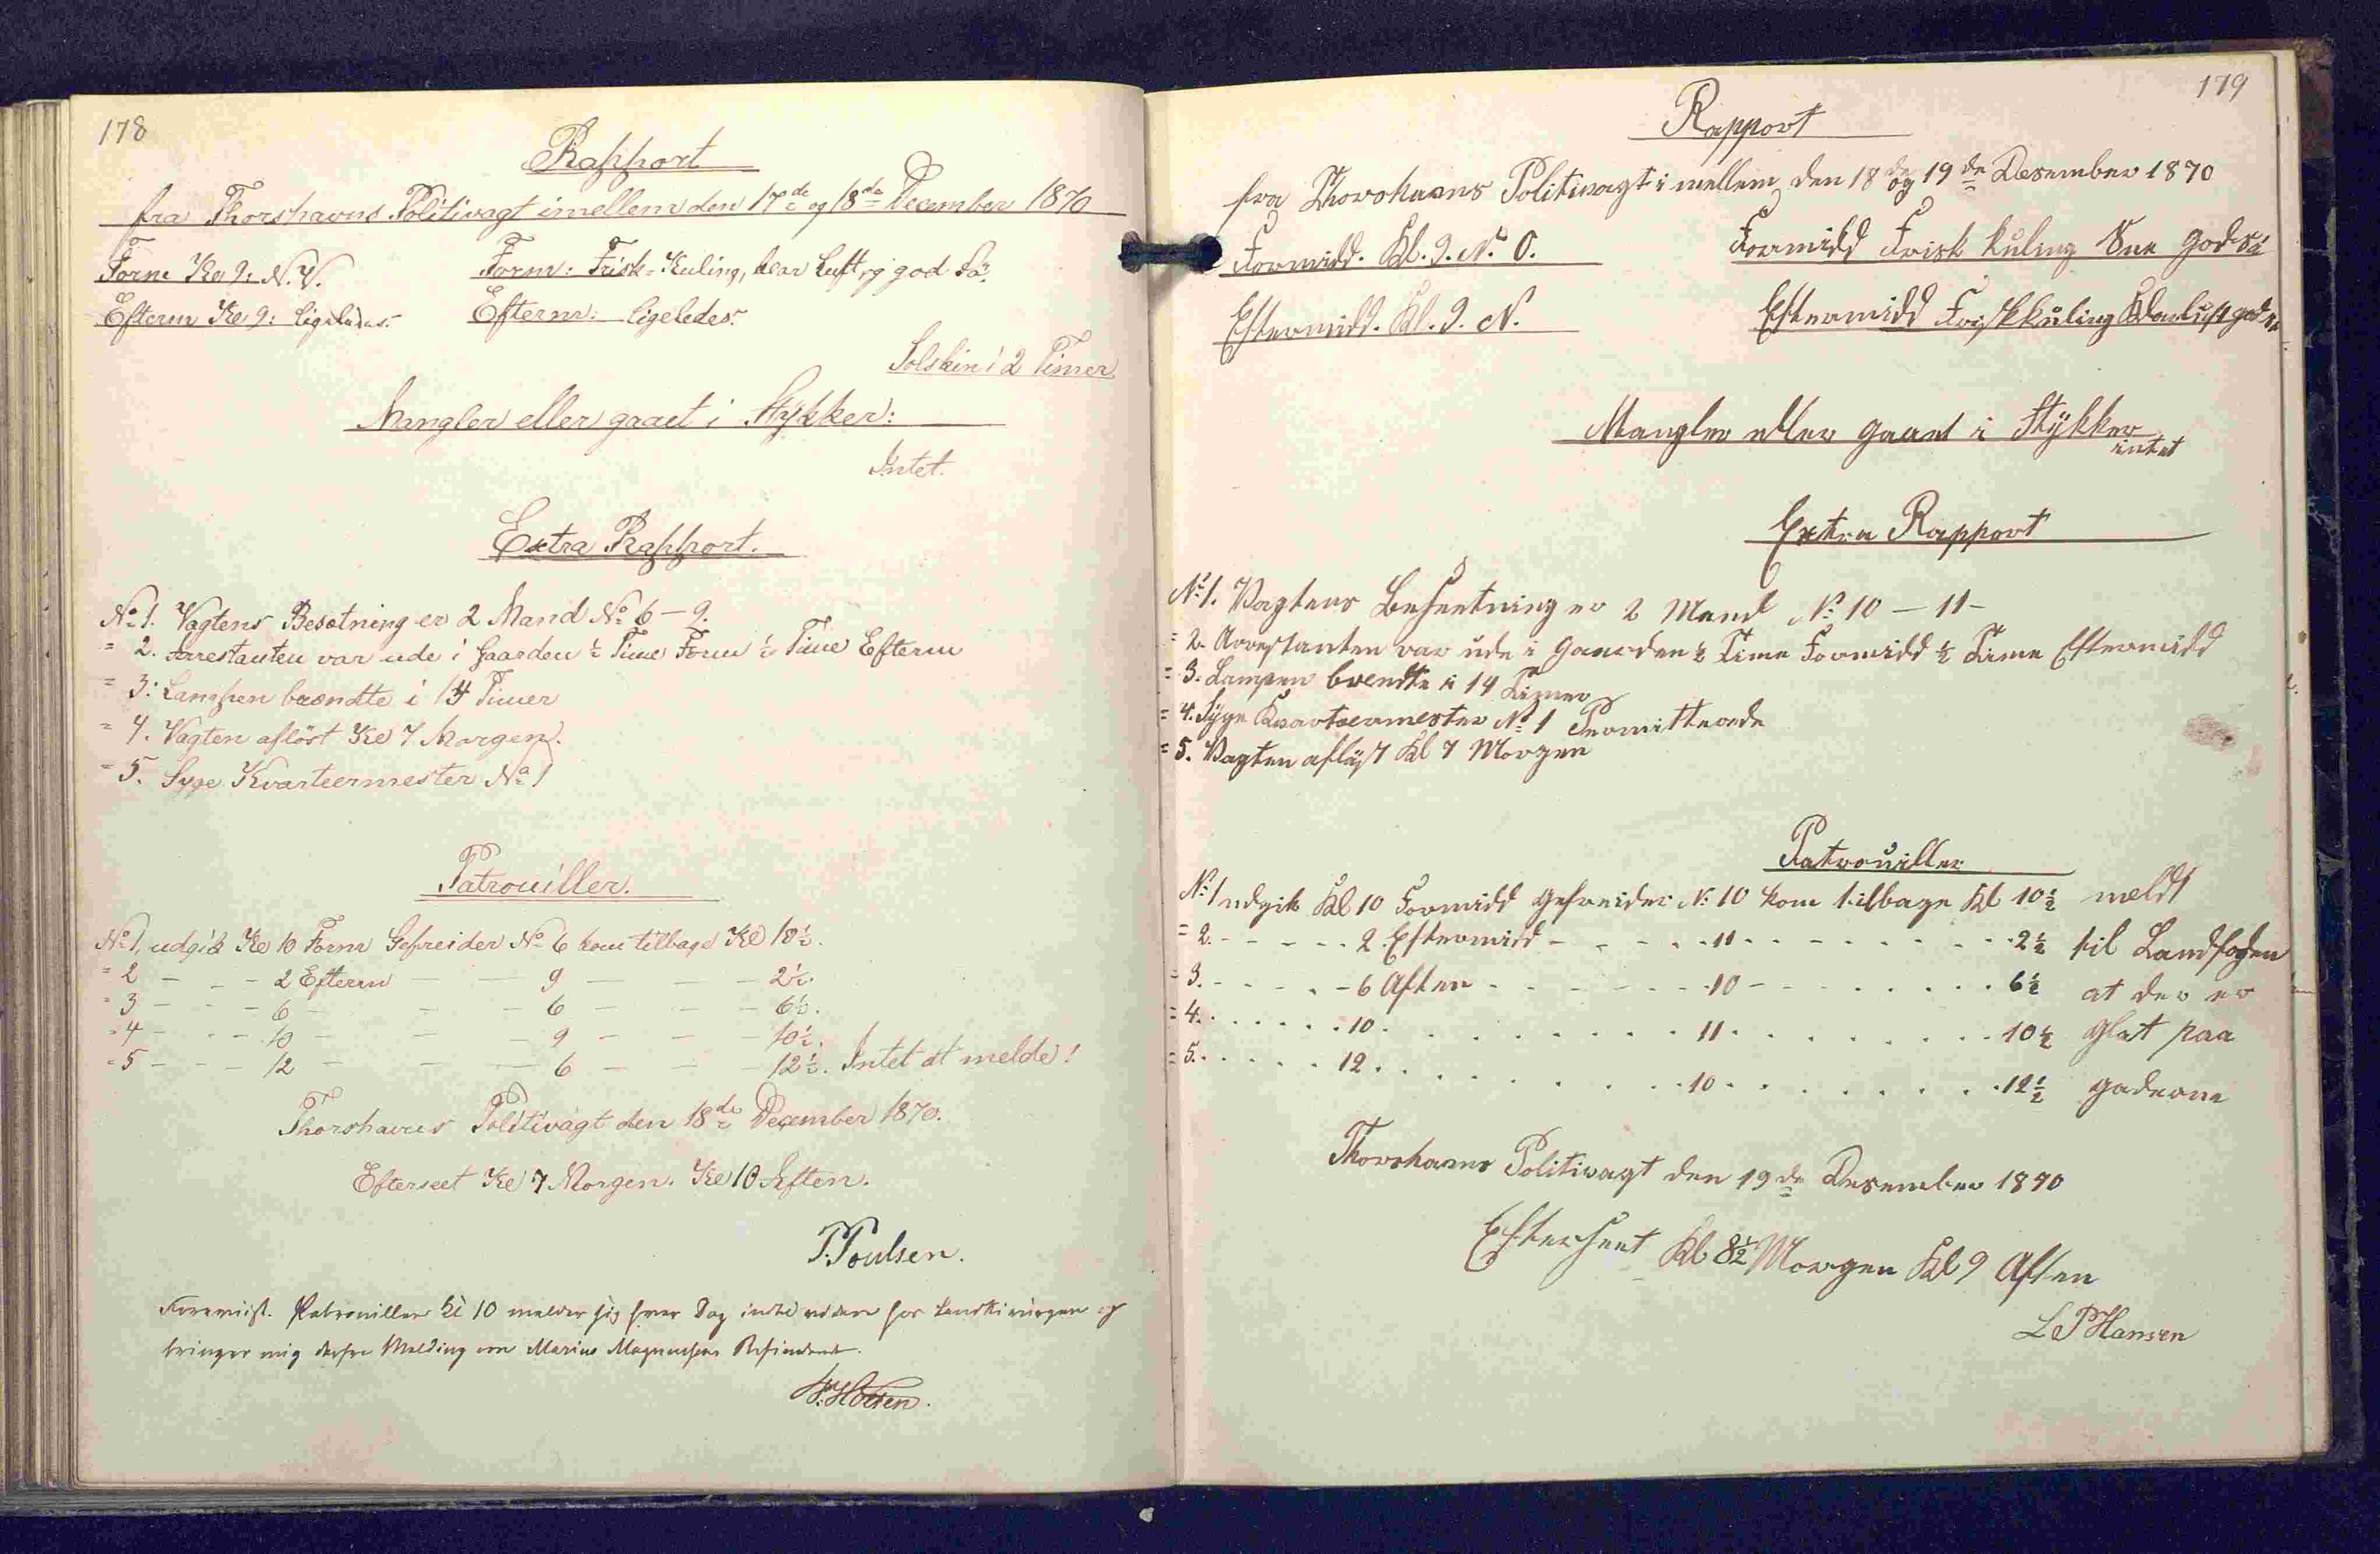 178
Rapport
fra Thorshavns Politivagt imellem den 17de og 18de December 1870
Form Kl 9: N.V. Form: Frisk-Kuling, klar Luft og god Sö.
Efterm Kl 9: ligeledes. Efterm: ligeledes.
Solskin i 2 Timer
Mangler eller gaaet i Stÿkker:
Intet.
Extra Rapport.
No 1. Vagtens Besætning er 2 Mand No 6 - 9.
= 2. Arrestanten var ude i Gaarden ½ Time Form ½ Time Efterm
= 3: Lampen brændte i 14 Timer
= 4. Vagten aflöst Kl 7 Morgen.
= 5. Syge Kvarteermester No 1
Patrouiller.
No 1, udgik Kl 10 Form Gefreider No 6 kom tilbage Kl 10½.
= 2 - - - 2 Efterm - - 9 - - - 2½.
= 3 - - - 6 - - - 6 - - - 6½.
= 4 - - - 10 - - - 9 - - - 10½.
= 5 - - - 12 - - - 6 - - - 12½. Intet at melde!
Thorshavns Politivagt den 18de December 1870.
Efterseet Kl 7 Morgen. Kl 10 Aften.
P. Poulsen.
Patrouillen Kl 10 melder sig hver Dag for Landkirurgen og
bringer mig derfra Melding om Marius Magnussens Befindende.
179
Rapport
fra Thorshavns Politivagt i mellem den 18de og 19de Desember 1870
Formidd. Kl. 9. N. O. Formidd Frisk kuling Sne god Sö
Eftermidd. Kl. 9. N. Eftermidd Frisk kuling Klar luft god
Mangler eller gaaet i Stÿkker
intet
Extra Rapport
No 1. Vagtens Besætning er 2 Mand No 10 - 11 -
= 2. Arrestanten var ude i Gaarden ½ Time Formidd ½ Time Eftermidd
= 3. Lampen brendte i 14 Timer
= 4. Sÿge Kvartermester No 1 Permitterede
= 5. Vagten aflöst Kl 7 Morgen
Patrouiller
No 1 udgik Kl 10 Formidd Gefreider No 10 kom tilbage Kl 10½ meldt
= 2. - - - - 2 Eftermidd - - - - 11 - - - - 2½ til Landfogden
= 3. - - - - 6 Aften - - - - 10 - - - - 6½ at der er
= 4. . . . . 10 . . . . 11 . . . . 10½ glat paa
= 5. . . . . 12 . . . . 10 . . . . 12½ gaderne
Thorshavns Politivagt den 19de Desember 1870
Efterseet Kl 8½ Morgen Kl 9 Aften
L P Hansen